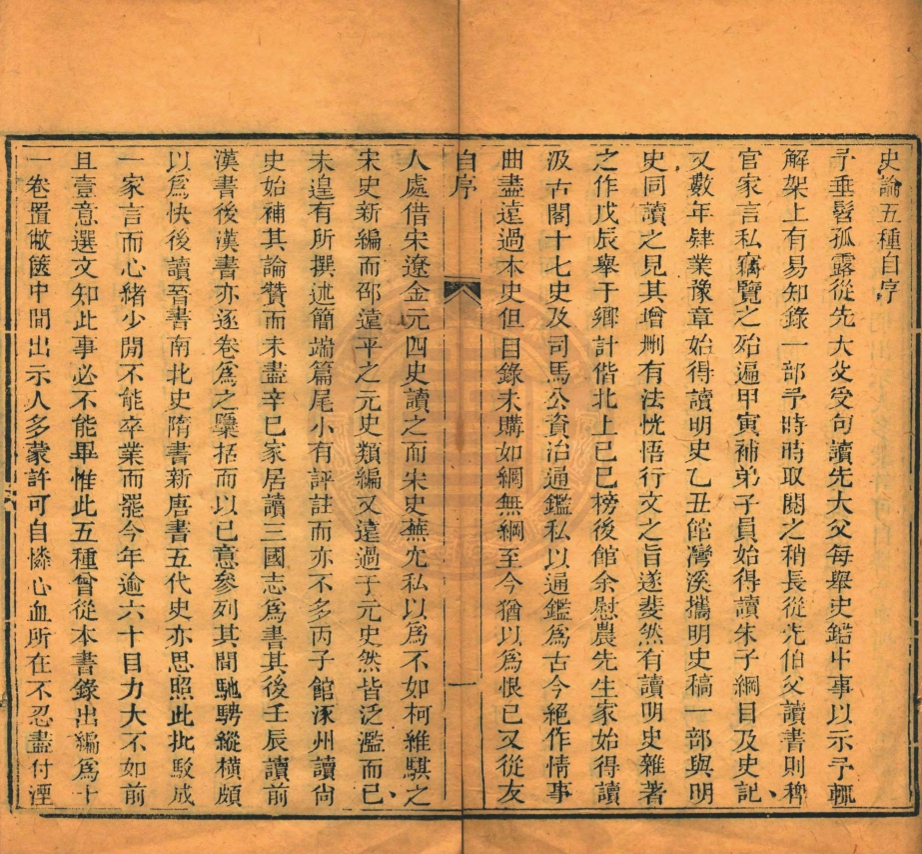 史論五種自序
予垂髫孤露從先大父受句讀先大父每舉史鑑中事以示予輒
解架上有易知錄一部予時時取閱之稍長從先伯父讀書則稗
官家言私竊覽之殆遍甲寅補弟子員始得讀朱子綱目及史記
又數年肄業豫章始得讀明史乙丑館灣溪攜明史稿一部與明
史同讀之見其增刪有法恍悟行文之旨遂斐然有讀明史雜著
之作戊辰舉于鄉計偕北上己巳榜後館余慰農先生家始得讀
汲古閣十七史及司馬公資治通鑑私以通鑑爲古今絕作情事
曲盡遠過本史但目錄未購如網無綱至今猶以爲恨已又從友
自序
一
人處借宋遼金元四史讀之而宋史蕪冗私以爲不如柯維騏之
宋史新編而邵遠平之元史類編又遠過于元史然皆泛濫而已
未遑有所撰述簡端篇尾小有評註而亦不多丙子館涿州讀尙
史始補其論贊而未盡辛巳家居讀三國志爲書其後壬辰讀前
漢書後漢書亦逐卷爲之櫽括而以已意參列其間馳騁縱橫頗
以爲快後讀晉書南北史隋書新唐書五代史亦思照此批駁成
一家言而心緖少閒不能卒業而罷今年逾六十目力大不如前
且壹意選文知此事必不能畢惟此五種曾從本書錄出編爲十
一卷置敝篋中間出示人多蒙許可自憐心血所在不忍盡付湮